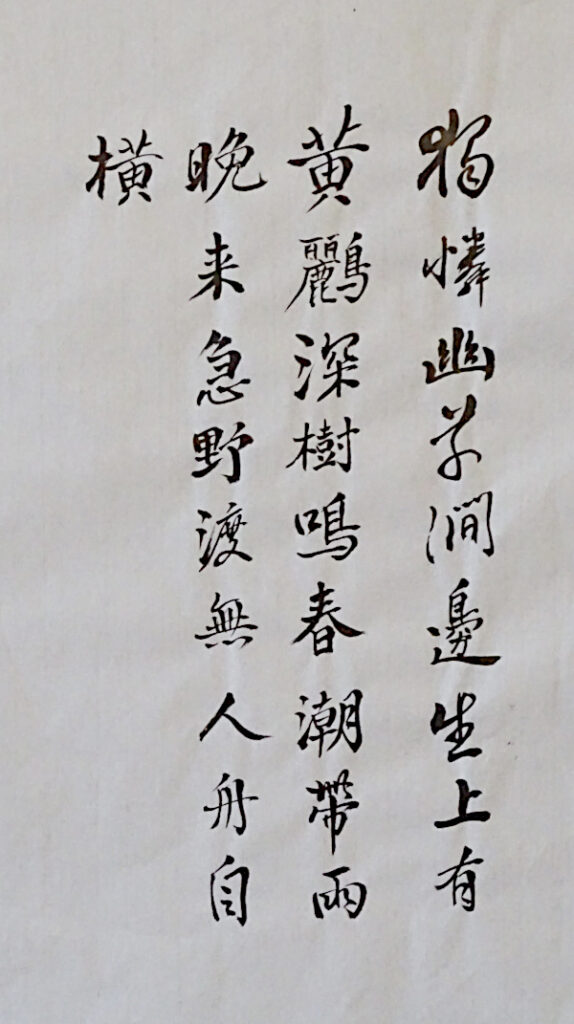 獨憐幽草澗邊生上有
黃鸝深樹鳴春潮帶雨
晚来急野渡無人舟自
橫